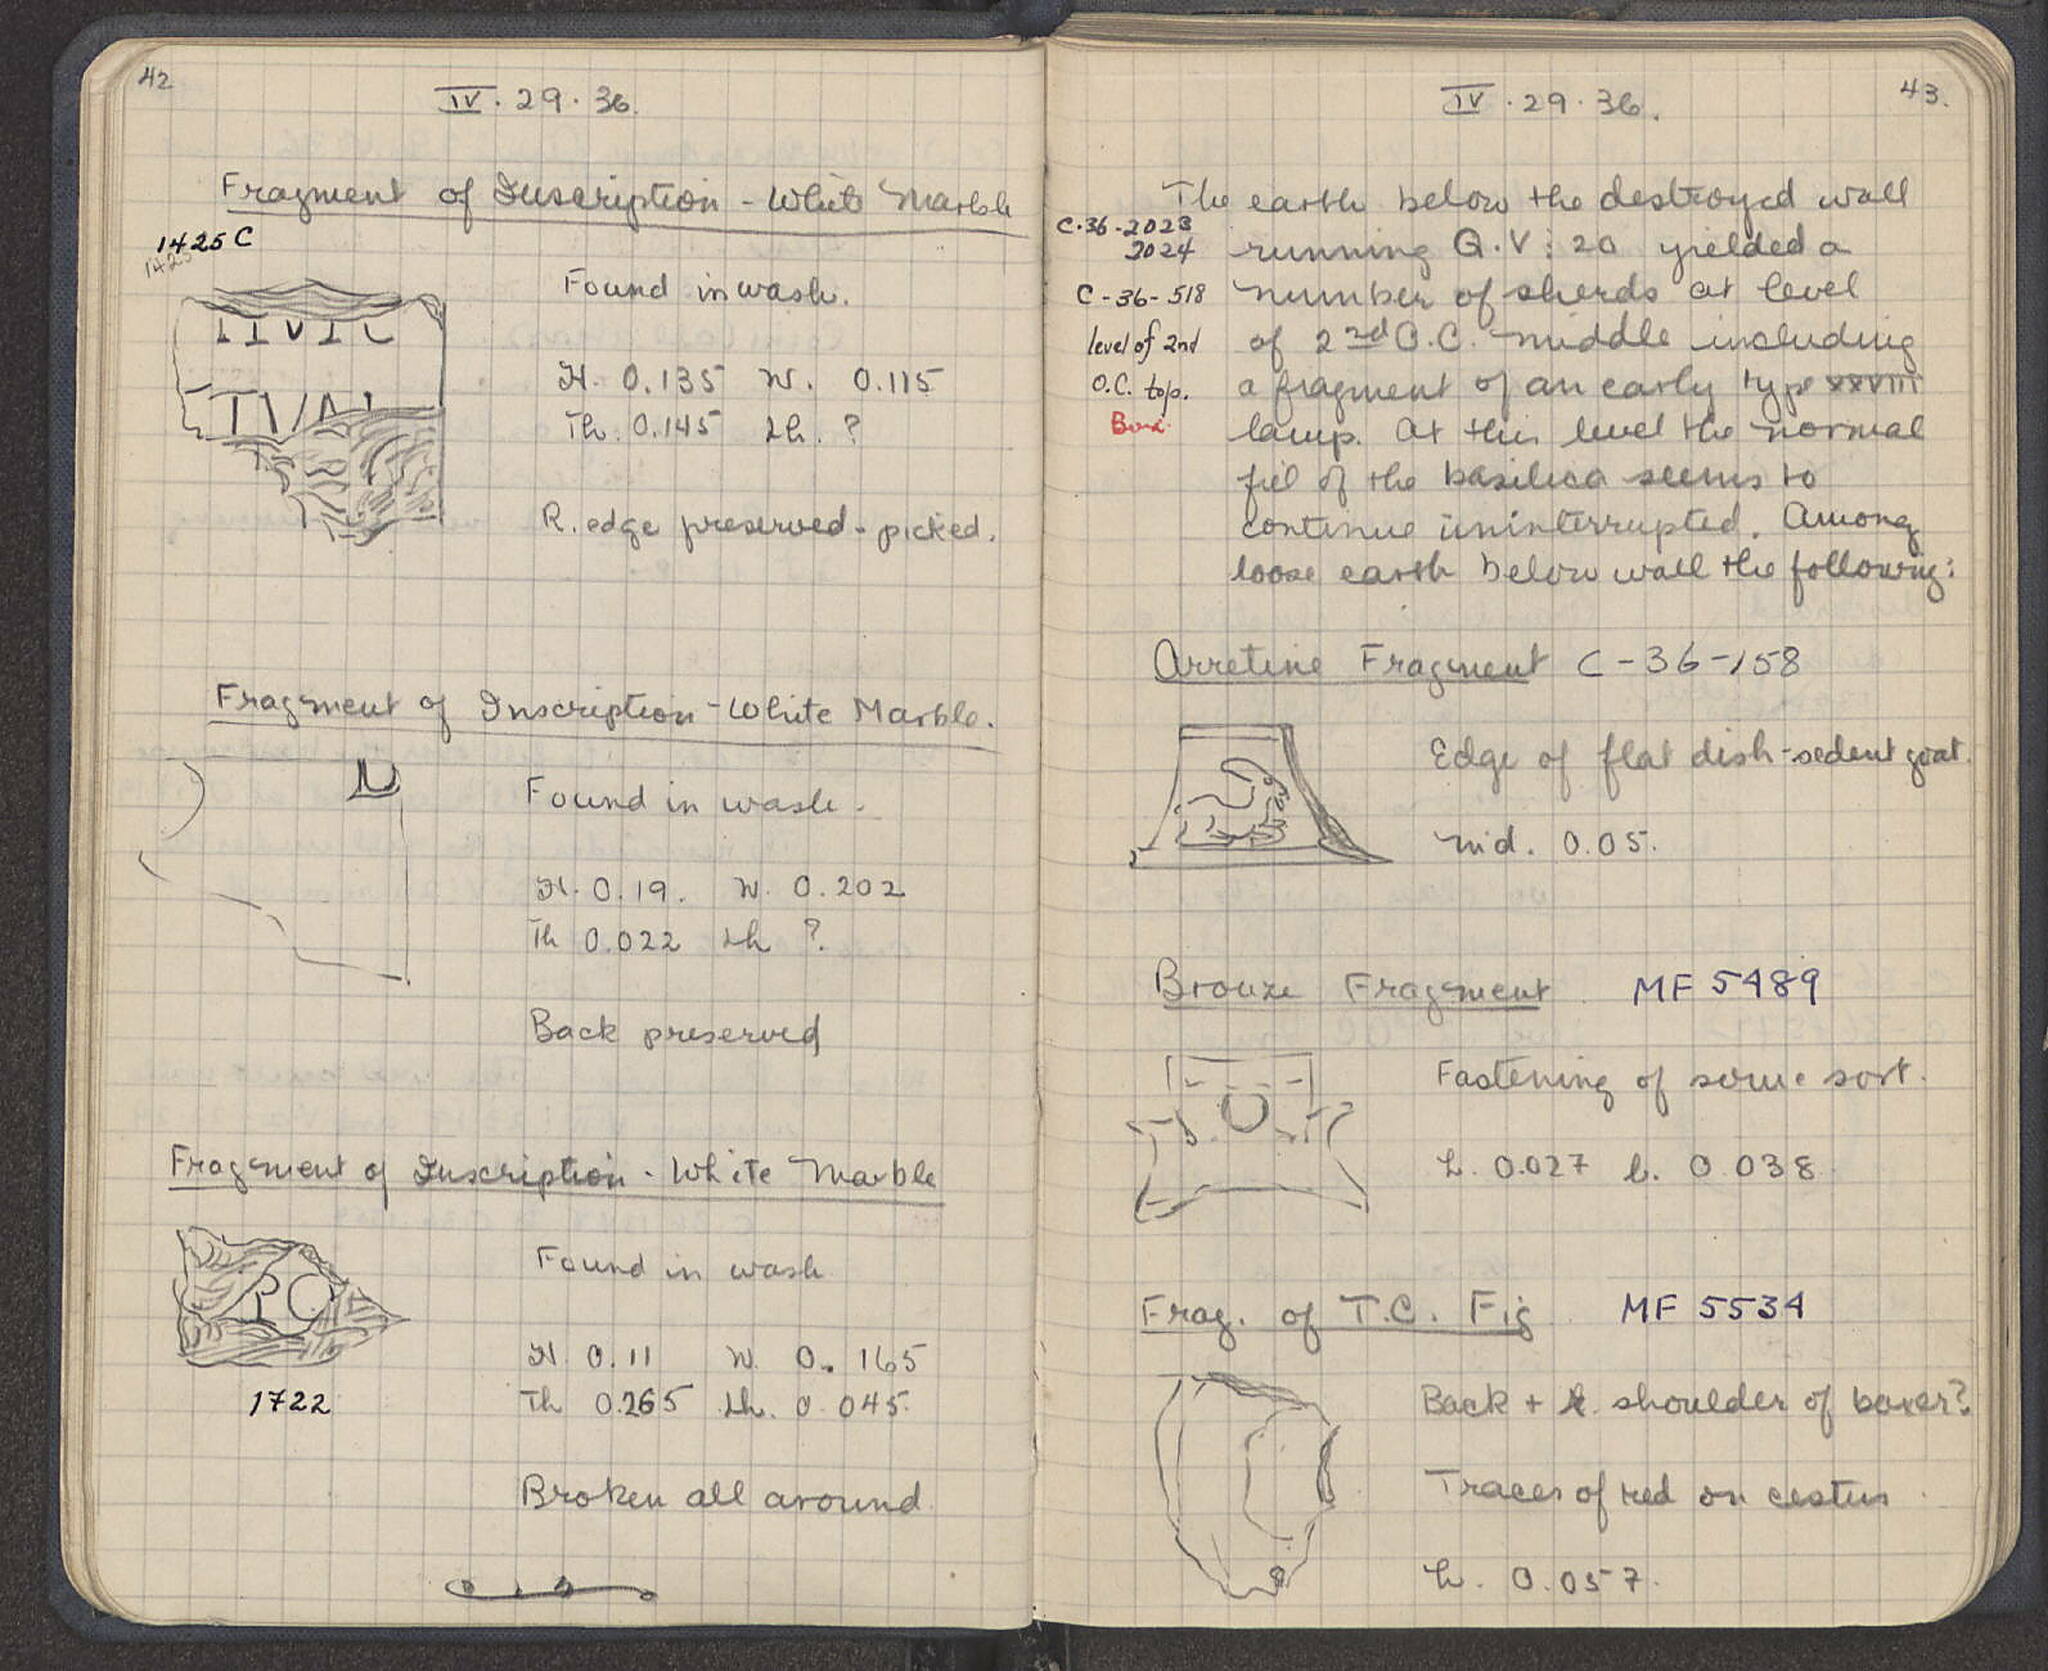 42
IV. 29. 36.
Fragment of Inscription - White Marble
1425 C
1425
Found in wash.
H. 0.135 W. 0.115
Th. 0.145 Lh. ?
R. edge preserved - picked.
Fragment of Inscription - White Marble.
Found in wash.
H. 0.19. W. 0.202
Th 0.022 Lh ?
Back preserved
Fragment of Inscription - White Marble
PC
Found in wash
H 0.11 W. 0.165
Th 0.265 Lh. 0.045.
1722
Broken all around
43.
IV. 29. 36.
The earth below the destroyed wall
running Q.V: 20 yielded a
number of sherds at level
of 2nd O.C. middle including
a fragment of an early type XXVIII
lamp. At this level the normal
fill of the basilica seems to
continue uninterrupted. Among
loose earth below wall the following:
C-36-2023
2024
C-36-518
level of 2nd
O.C. top.
Box
Arretine Fragment C-36-158
Edge of flat dish - sedent goat.
md. 0.05.
Bronze Fragment. MF 5489
Fastening of some sort.
h. 0.027 l. 0.038.
Frag. of T.C. Fig. MF 5534
Back + R. shoulder of boxer?
Traces of red on cestus.
h. 0.057.